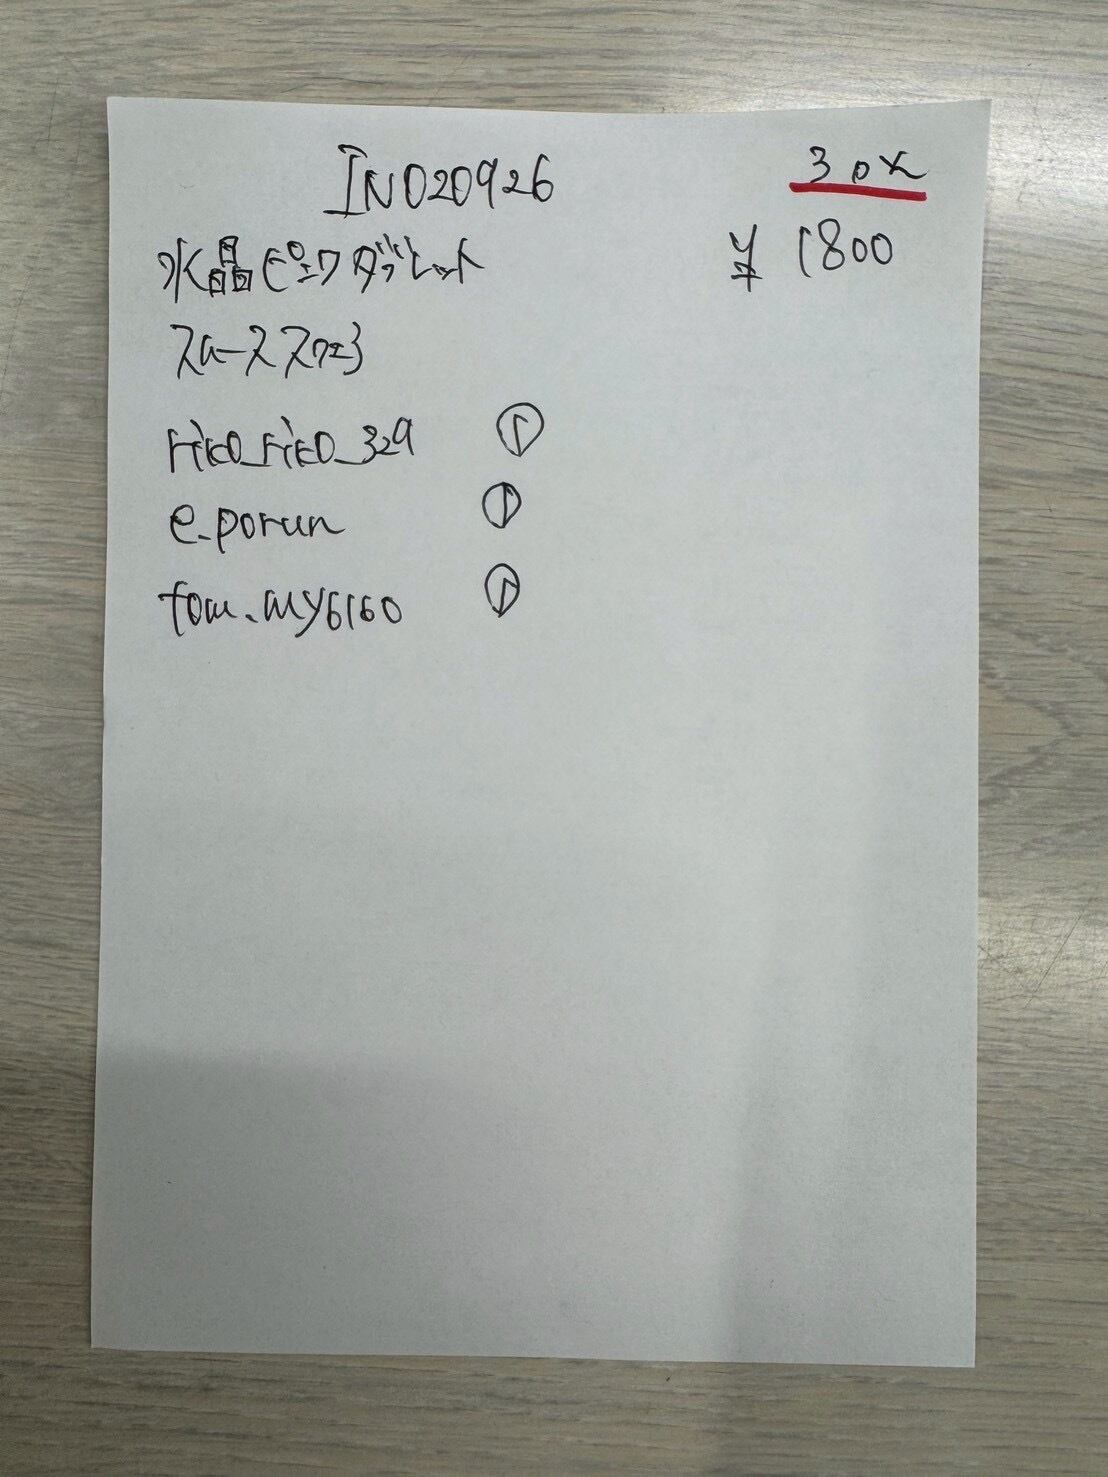 INO20926 30x
水晶ピンクダブレット ¥1800
スースクエ
rico_rico_329 ①
e.porun ①
tom.my6160 ①